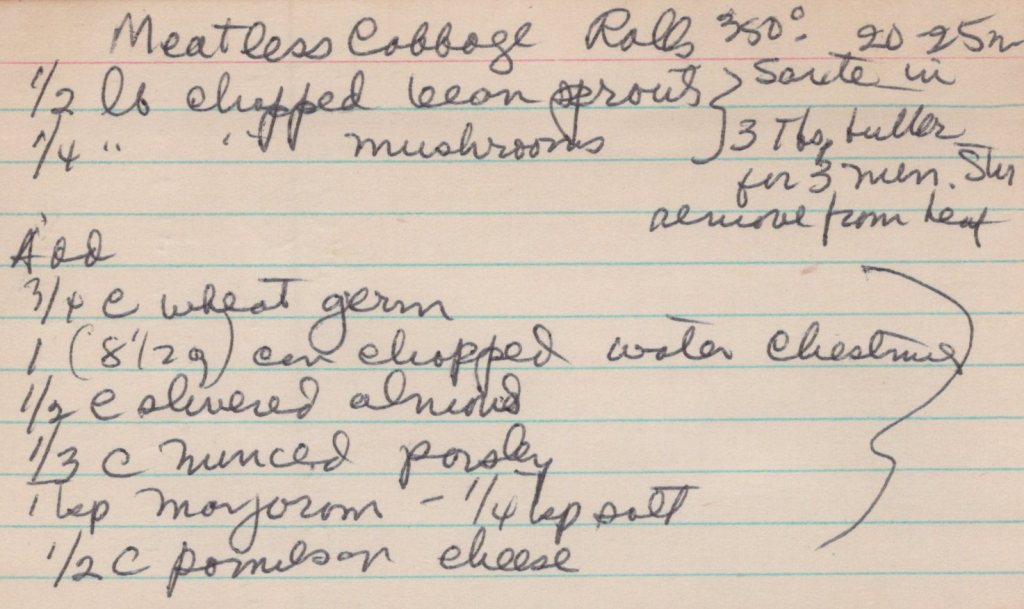 Meatless Cabbage Rolls 350° 20-25m
1/2 lb chopped bean sprouts
1/4 " " mushrooms
Saute in
3 Tbs butter
for 3 min. Stir
remove from heat
Add
3/4 C wheat germ
1 (8 1/2 oz) can chopped water chestnuts
1/2 C slivered almond
1/3 C minced parsley
1 tsp marjoram - 1/4 tsp salt
1/2 C parmesan cheese